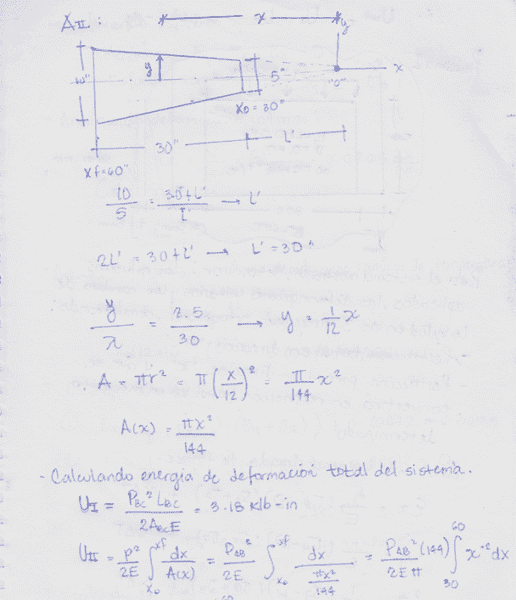 AII :
x
y
y
x
10"
5"
"0"
x0 = 30"
30"
L'
xf = 60"
10/5 = (30 + L')/L' → L'
2L' = 30 + L' → L' = 30"
y/x = 2.5/30 → y = 1/12 x
A = πr² = π(x/12)² = π/144 x²
A(x) = πx²/144
- Calculando energia de deformación total del sistema.
UI = PBC² LBC / 2ABCE = 3.18 Klb-in
UII = P²/2E ∫x0^xf dx/A(x) = PAB²/2E ∫x0^xf dx/(πx²/144) = PAB²(144)/2Eπ ∫30^60 x⁻² dx
60